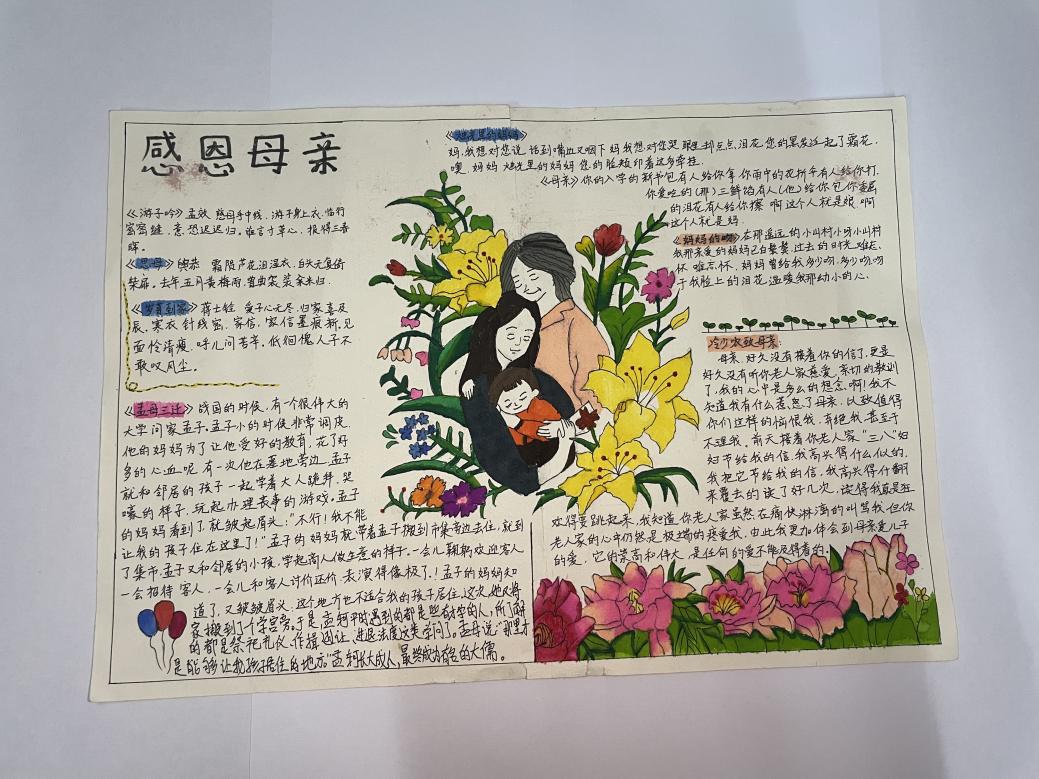 感恩母亲
《游子吟》孟郊 慈母手中线,游子身上衣,临行
密密缝,意恐迟迟归。谁言寸草心,报得三春
晖。
《思母》 霜陨芦花泪湿衣,白头无复倚
柴扉,去年五月黄梅雨,曾典袈裟籴米归.
《岁暮到家》蒋士铨 爱子心无尽,归家喜及
辰,寒衣针线密,家信墨痕新,见
面怜清瘦,呼儿问苦辛,低徊愧人子不
敢叹风尘。
《孟母三迁》战国的时候,有一个很伟大的
大学问家孟子,孟子小的时候非常调皮,
他的妈妈为了让他受好的教育,花了好
多的心血呢,有一次他在墓地旁边,孟子
就和邻居的孩子一起学着大人跪拜、哭
嚎的样子,玩起办理丧事的游戏,孟子
的妈妈看到了就皱起眉头:"不行!我不能
让我的孩子住在这里了!"孟子的妈妈就带着孟子搬到市集旁边去住,就到
了集市,孟子又和邻居的小孩,学起商人做生意的样子,一会儿鞠躬欢迎客人
一会招待客人,一会儿和客人讨价还价,表演得像极了!孟子的妈妈知
道了,又皱皱眉头,这个地方也不适合我的孩子居住,这次,她又将
家搬到了个学宫旁,于是孟轲平时遇到的都是些
的都是祭祀礼仪、作揖逊让、进退法度这类学问了。孟母说"那里才
是能够让我孩子居住的地方"孟轲长大成人,最终成为有名的大儒。
《烛光里的妈妈》
妈,我想对您说,话到嘴边又咽下,妈,我想对您笑,眼里却点点泪花,您的黑发泛起了霜花,
噢,妈妈,烛光里的妈妈,您的脸颊印着这多牵挂.
《母亲》你的入学的新书包有人给你拿,你雨中的花折伞有人给你打,
你爱吃的(那)三鲜馅有人(他)给你包,你委屈
的泪花有人给你擦,啊这个人就是娘,啊
这个人就是妈.
《妈妈的吻》在那遥远的小山村小呀小山村
我那亲爱的妈妈已白鬓鬓,过去的时光难忘
怀,难忘怀,妈妈曾给我多少吻,多少吻,吻
干我脸上的泪花,温暖我那幼小的心.
冷少农致母亲:
母亲,好久没有接着你的信了,更是
好久没有听你老人家慈爱、亲切的教训
了,我的心中是多么的想念啊!我不
知道我有什么惹怒了母亲,以致值得
你们这样的恼恨我,弃绝我,甚至于
不理我,前天接着你老人家"三八"妇
妇节给我的信,我高兴得什么似的,
我把它节给我的信,我高兴得什翻
来覆去的读了好几次,读得我真是狂
欢得要跳起来,我知道你老人家虽然在痛快淋漓的叫骂我,但你
老人家的心中仍然是极端的慈爱我,由此我更加体会到母亲爱儿子
的爱,它的崇高和伟大,是任何的爱不能及得着的.